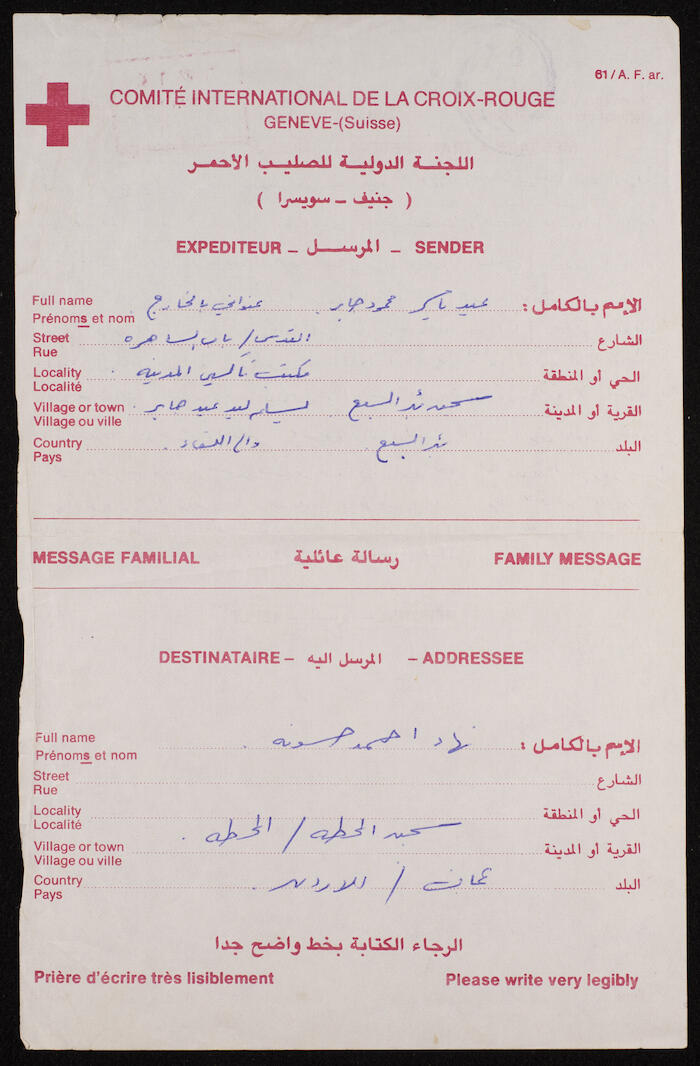 61/A. F. ar.
COMITÉ INTERNATIONAL DE LA CROIX-ROUGE
GENEVE-(Suisse)
اللجنة الدولية للصليب الأحمر
( جنيف – سويسرا )
EXPEDITEUR – المرسل – SENDER
Full name عبد محمود جابر عنواني بالخارج الإسم بالكامل :
Prénoms et nom
Street القدس / باب الساهره الشارع
Rue
Locality مكتب تاكسي المدينه الحي أو المنطقة
Localité
Village or town سجن بئر السبع عبد جابر القرية أو المدينة
Village ou ville
Country بئر السبع البلد
Pays
MESSAGE FAMILIAL رسالة عائلية FAMILY MESSAGE
DESTINATAIRE – المرسل اليه – ADDRESSEE
Full name نهاد احمد حسونه الإسم بالكامل :
Prénoms et nom
Street الشارع
Rue
Locality الحي أو المنطقة
Localité
سجن المحطه / المحطه
Village or town القرية أو المدينة
Village ou ville
Country عمان / الاردن البلد
Pays
الرجاء الكتابة بخط واضح جدا
Prière d'écrire très lisiblement Please write very legibly